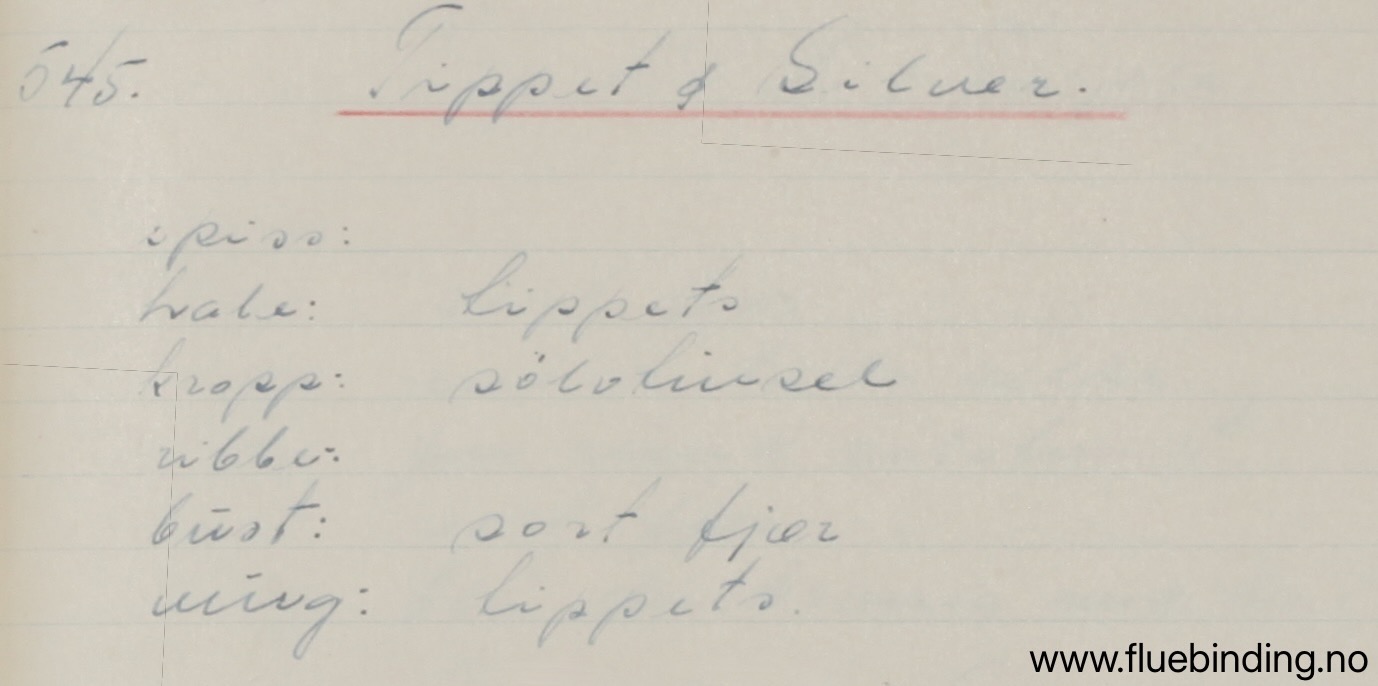 545. Tippet & Silver.
spiss:
hale: tippets
kropp: sölvtinsel
ribbe:
büst: sort fjær
ving: tippets.
www.fluebinding.no